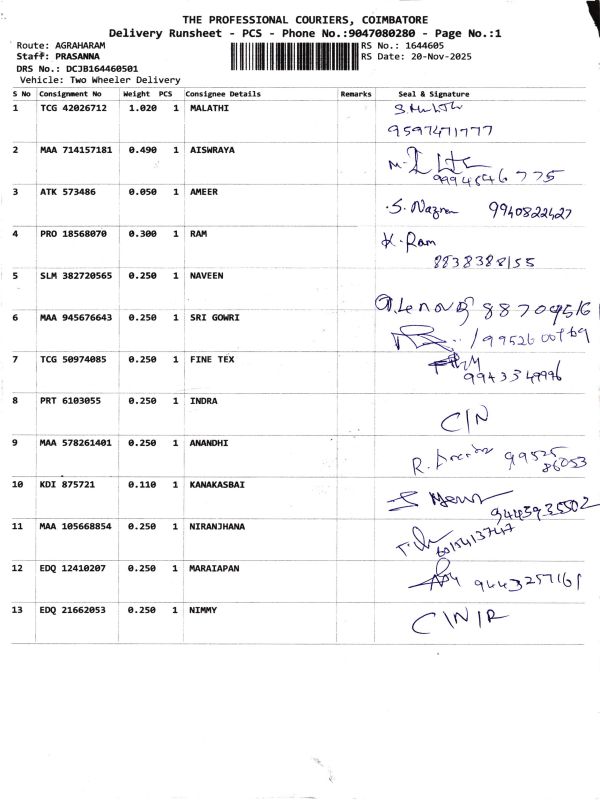 THE PROFESSIONAL COURIERS, COIMBATORE
Delivery Runsheet - PCS - Phone No.:9047080280 - Page No.:1
Route: AGRAHARAM RS No.: 1644605
Staff: PRASANNA RS Date: 20-Nov-2025
DRS No.: DCJB164460501
Vehicle: Two Wheeler Delivery
S No Consignment No Weight PCS Consignee Details Remarks Seal & Signature
1 TCG 42026712 1.020 1 MALATHI
9597471777
2 MAA 714157181 0.490 1 AISWRAYA
3 ATK 573486 0.050 1 AMEER S. Nazreen 9940822427
4 PRO 18568070 0.300 1 RAM K. Ram
8838388155
5 SLM 382720565 0.250 1 NAVEEN
88709516
6 MAA 945676643 0.250 1 SRI GOWRI
7 TCG 50974085 0.250 1 FINE TEX
8 PRT 6103055 0.250 1 INDRA C/N
9 MAA 578261401 0.250 1 ANANDHI R. 99525
86053
10 KDI 875721 0.110 1 KANAKASBAI
9443935502
11 MAA 105668854 0.250 1 NIRANJHANA
12 EDQ 12410207 0.250 1 MARAIAPAN 9443257161
13 EDQ 21662053 0.250 1 NIMMY C/N/R